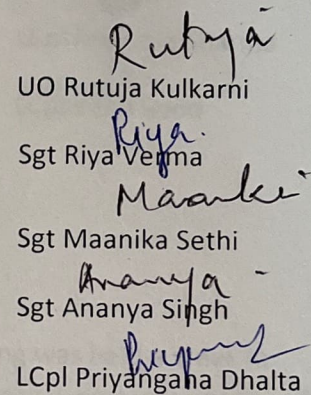 Rutuja
UO Rutuja Kulkarni
Riya.
Sgt Riya Verma
Sgt Maanika Sethi
Ananya
Sgt Ananya Singh
LCpl Priyangana Dhalta